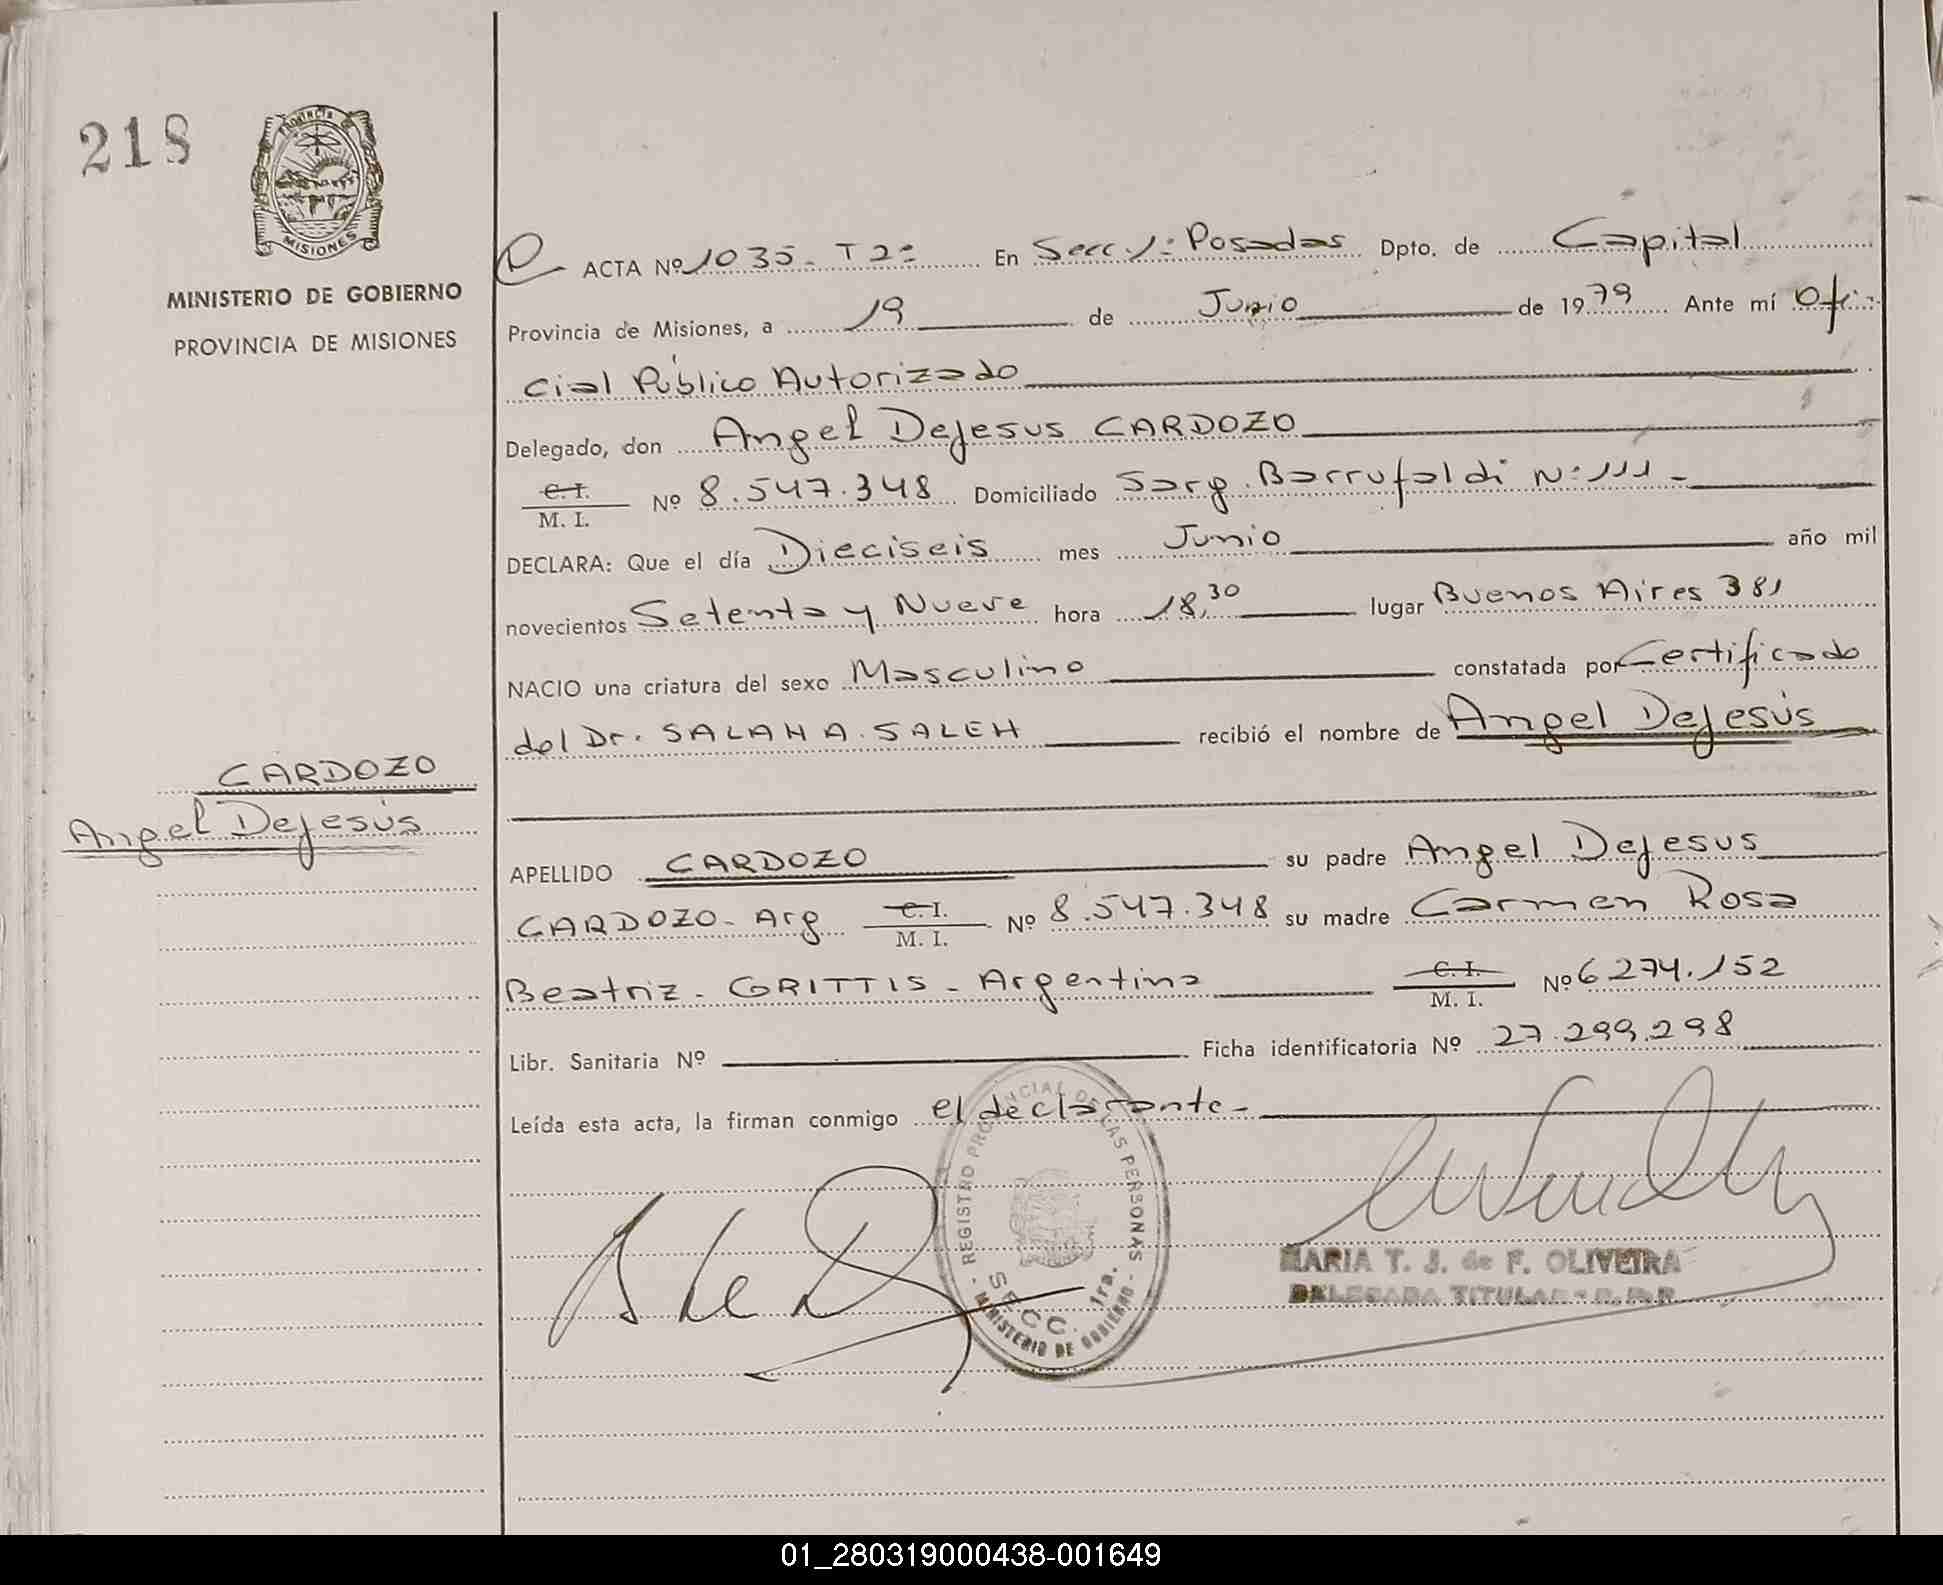 218
PROVINCIA DE
MISIONES
MINISTERIO DE GOBIERNO
PROVINCIA DE MISIONES
ACTA Nº 1035- T2º En Secc 1: Posadas Dpto. de Capital
Provincia de Misiones, a 19 de Junio de 1979 Ante mí Ofi-
cial Público Autorizado
Delegado, don Angel DeJesus CARDOZO
C.I.
M. I. Nº 8.547.348 Domiciliado Sarg. Barrufaldi Nº 111-
DECLARA: Que el día Dieciseis mes Junio año mil
novecientos Setenta y Nueve hora 18,30 lugar Buenos Aires 381
NACIO una criatura del sexo Masculino constatada por Certificado
del Dr. SALAH A. SALEH recibió el nombre de Angel DeJesús
CARDOZO
Angel DeJesús
APELLIDO CARDOZO su padre Angel DeJesus
CARDOZO- Arg C.I.
M. I. Nº 8.547.348 su madre Carmen Rosa
Beatriz- GRITTIS- Argentina C.I.
M. I. Nº 6274.152
Libr. Sanitaria Nº Ficha identificatoria Nº 27.299.298
Leída esta acta, la firman conmigo el declarante-
REGISTRO PROVINCIAL DE LAS PERSONAS
SECC. 1ra.
MINISTERIO DE GOBIERNO
MARIA T. J. de F. OLIVEIRA
DELEGADA TITULAR - R. P. P.
01_280319000438-001649